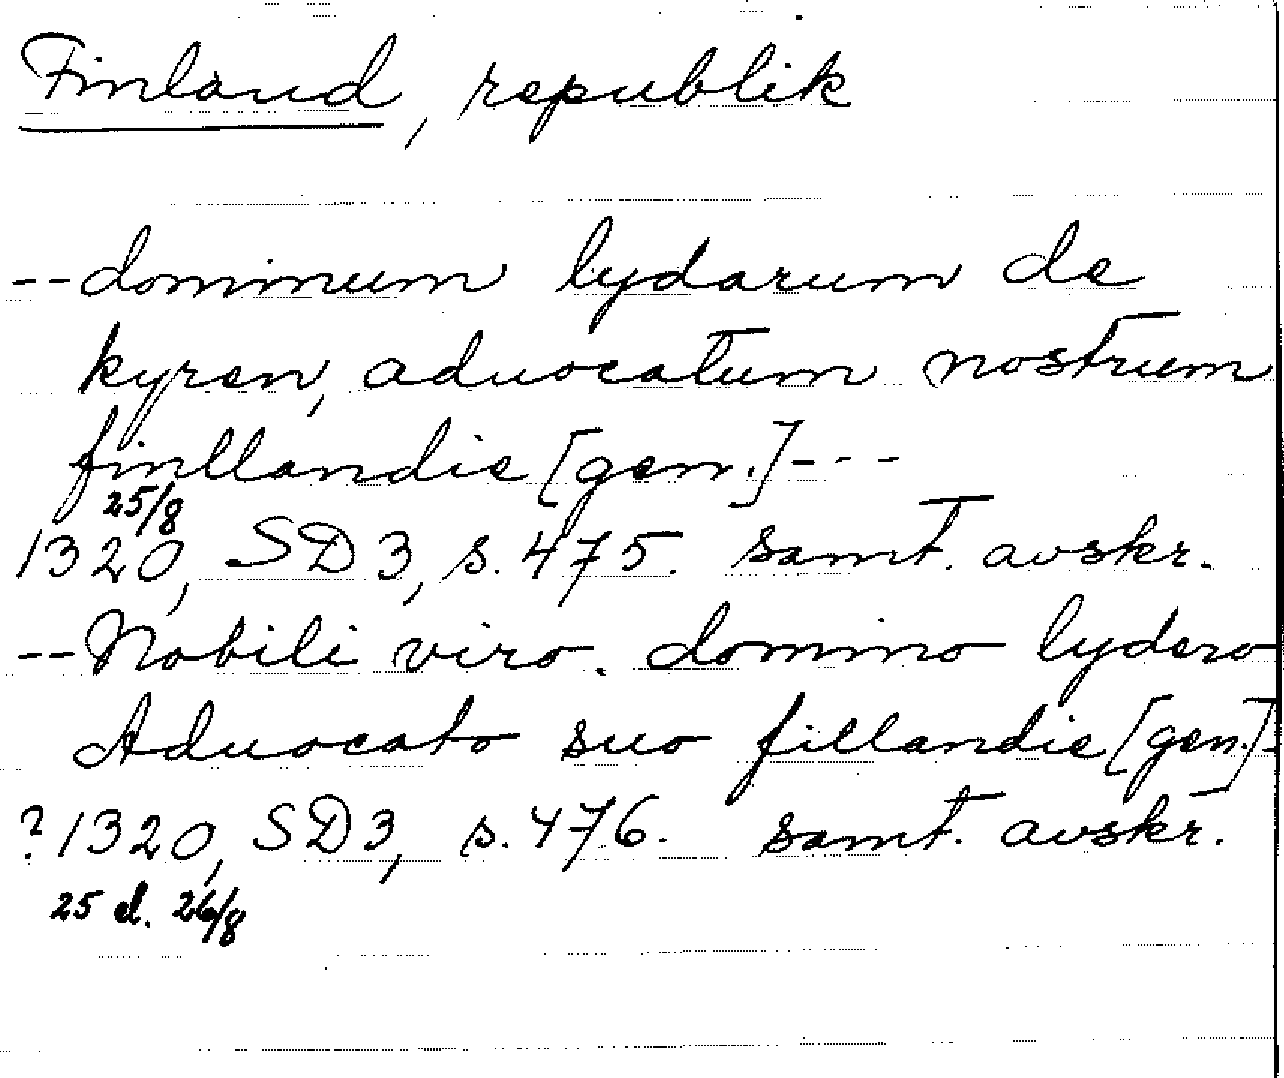 Finland, republik
--dominum lydarum de
kyren, aduocatum nostrum
finllandie [gen.]---
25/8
1320, SD 3, s. 475. samt. avskr.
--Nobili viro. domino lydero
Aduocato suo fillandie [gen.]-
? 1320, SD3, s. 476. samt. avskr.
25 el. 26/8